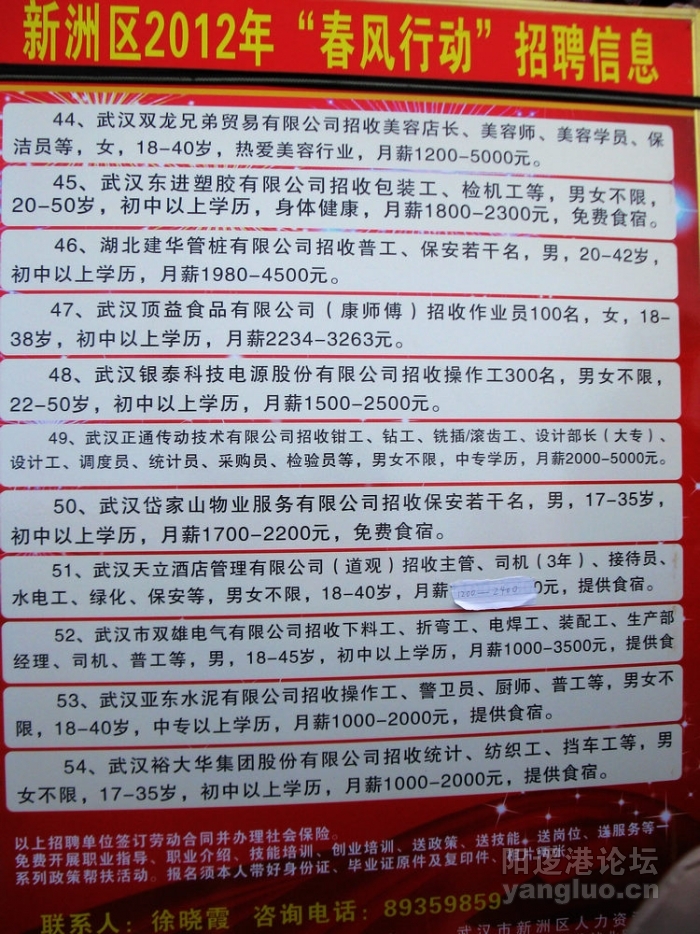 新洲区2012年“春风行动”招聘信息
44、武汉双龙兄弟贸易有限公司招收美容店长、美容师、美容学员、保
洁员等，女，18-40岁，热爱美容行业，月薪1200-5000元。
45、武汉东进塑胶有限公司招收包装工、检机工等，男女不限，
20-50岁，初中以上学历，身体健康，月薪1800-2300元，免费食宿。
46、湖北建华管桩有限公司招收普工、保安若干名，男，20-42岁，
初中以上学历，月薪1980-4500元。
47、武汉顶益食品有限公司（康师傅）招收作业员100名，女，18-
38岁，初中以上学历，月薪2234-3263元。
48、武汉银泰科技电源股份有限公司招收操作工300名，男女不限，
22-50岁，初中以上学历，月薪1500-2500元。
49、武汉正通传动技术有限公司招收钳工、钻工、铣插/滚齿工、设计部长（大专）、
设计工、调度员、统计员、采购员、检验员等，男女不限，中专学历，月薪2000-5000元。
50、武汉岱家山物业服务有限公司招收保安若干名，男，17-35岁，
初中以上学历，月薪1700-2200元，免费食宿。
51、武汉天立酒店管理有限公司（道观）招收主管、司机（3年）、接待员、
水电工、绿化、保安等，男女不限，18-40岁，月薪1200-2900元，提供食宿。
52、武汉市双雄电气有限公司招收下料工、折弯工、电焊工、装配工、生产部
经理、司机、普工等，男，18-45岁，初中以上学历，月薪1000-3500元，提供食
53、武汉亚东水泥有限公司招收操作工、警卫员、厨师、普工等，男女不
限，18-40岁，中专以上学历，月薪1000-2000元，提供食宿。
54、武汉裕大华集团股份有限公司招收统计、纺织工、挡车工等，男
女不限，17-35岁，初中以上学历，月薪1000-2000元，提供食宿。
以上招聘单位签订劳动合同并办理社会保险。
免费开展职业指导、职业介绍、技能培训、创业培训、送政策、送技能、送岗位、送服务等一
系列政策帮扶活动。报名须本人带好身份证、毕业证原件及复印件、照片
联系人：徐晓霞 咨询电话：89359859
武汉市新洲区人力资
阳逻港论坛
yangluo.cn